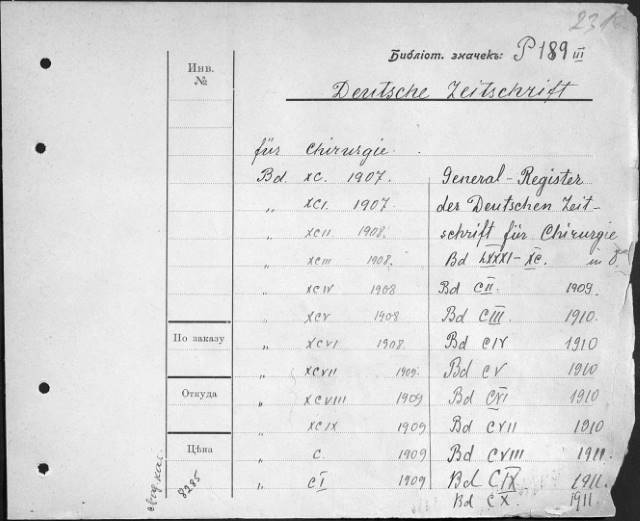 Библіот. значекъ: P 189 III
Инв. №
Deutsche Zeitschrift
für Chirurgie.
Bd. XC. 1907.
„ XCI. 1907.
„ XCII 1908.
„ XCIII 1908.
„ XCIV 1908
„ XCV 1908
„ XCVI 1908.
„ XCVII 1909.
„ XCVIII 1909
„ XCIX 1909
„ C. 1909
„ CI 1909
General-Register
der Deutschen Zeit-
schrift für Chirurgie
Bd LXXXI-XC. in 8°
Bd CII. 1909.
Bd CIII. 1910.
Bd CIV 1910
Bd CV 1910
Bd CVI 1910
Bd CVII 1910
Bd CVIII 1911.
Bd CIX 1911.
Bd CX. 1911.
По заказу
Откуда
Цѣна
8285